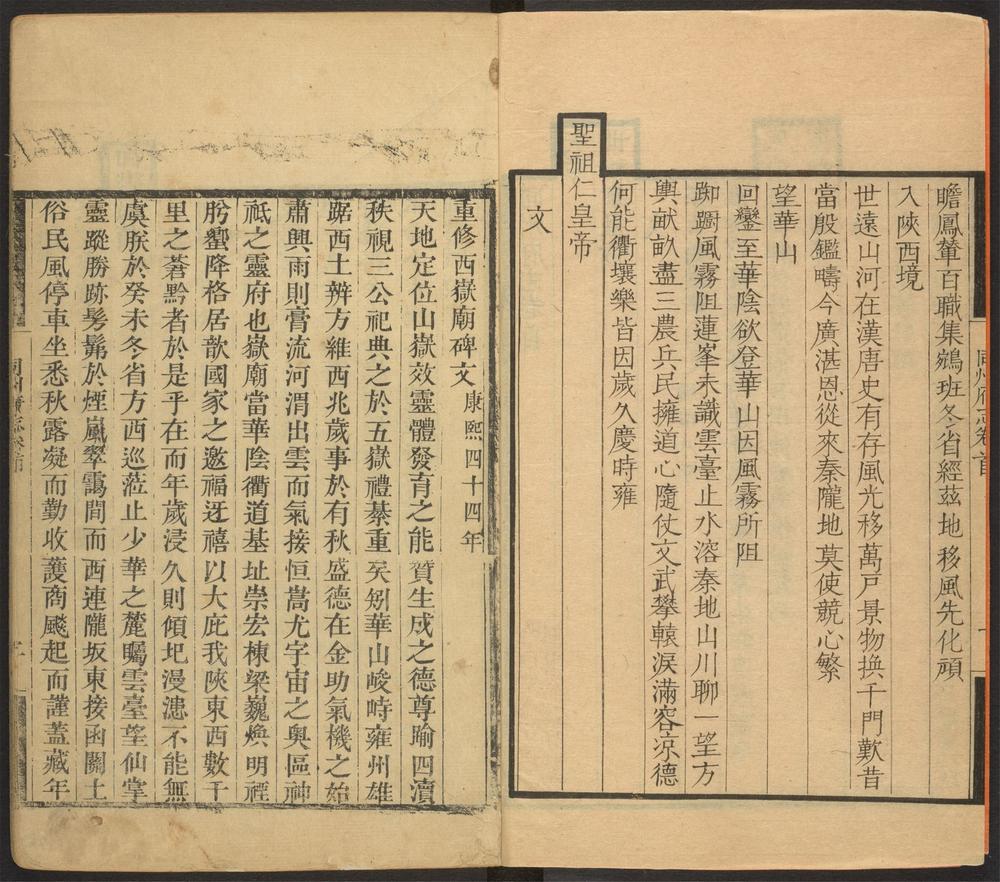 同州府志卷首
瞻鳳輦百職集鵷班冬省經茲地移風先化頑
入陝西境
世遠山河在漢唐史有存風光移萬戶景物換千門歎昔
當殷鑑疇今廣湛恩從來秦隴地莫使競心繁
望華山
回鑾至華陰欲登華山因風霧所阻
踟躕風霧阻蓮峯未識雲臺止水溶秦地山川聊一望方
輿献畝盡三農兵民擁道心隨仗文武攀轅淚滿容涼德
何能衢壤樂皆因歲久慶時雍
聖祖仁皇帝
文
重修西嶽廟碑文康熙四十四年
天地定位山嶽效靈體發育之能贊生成之德尊踰四瀆
秩視三公祀典之於五嶽禮綦重矣矧華山峻峙雍州雄
踞西土辨方維西兆歲事於有秋盛德在金助氣機之始
肅興雨則膏流河渭出雲而氣接恒嵩尤宇宙之奧區神
祇之靈府也嶽廟當華陰衢道基址崇宏棟梁巍煥明禋
肹蠁降格居歆國家之邀福迓禧以大庇我陝東西數千
里之蒼黔者於是乎在而年歲浸久則傾圮漫漶不能無
虞朕於癸未冬省方西巡蒞止少華之麓矚雲臺望仙掌
靈蹤勝跡髣髴於煙嵐翠靄間而西連隴坂東接函關土
俗民風停車坐悉秋露凝而勤收穫商颷起而謹蓋藏年